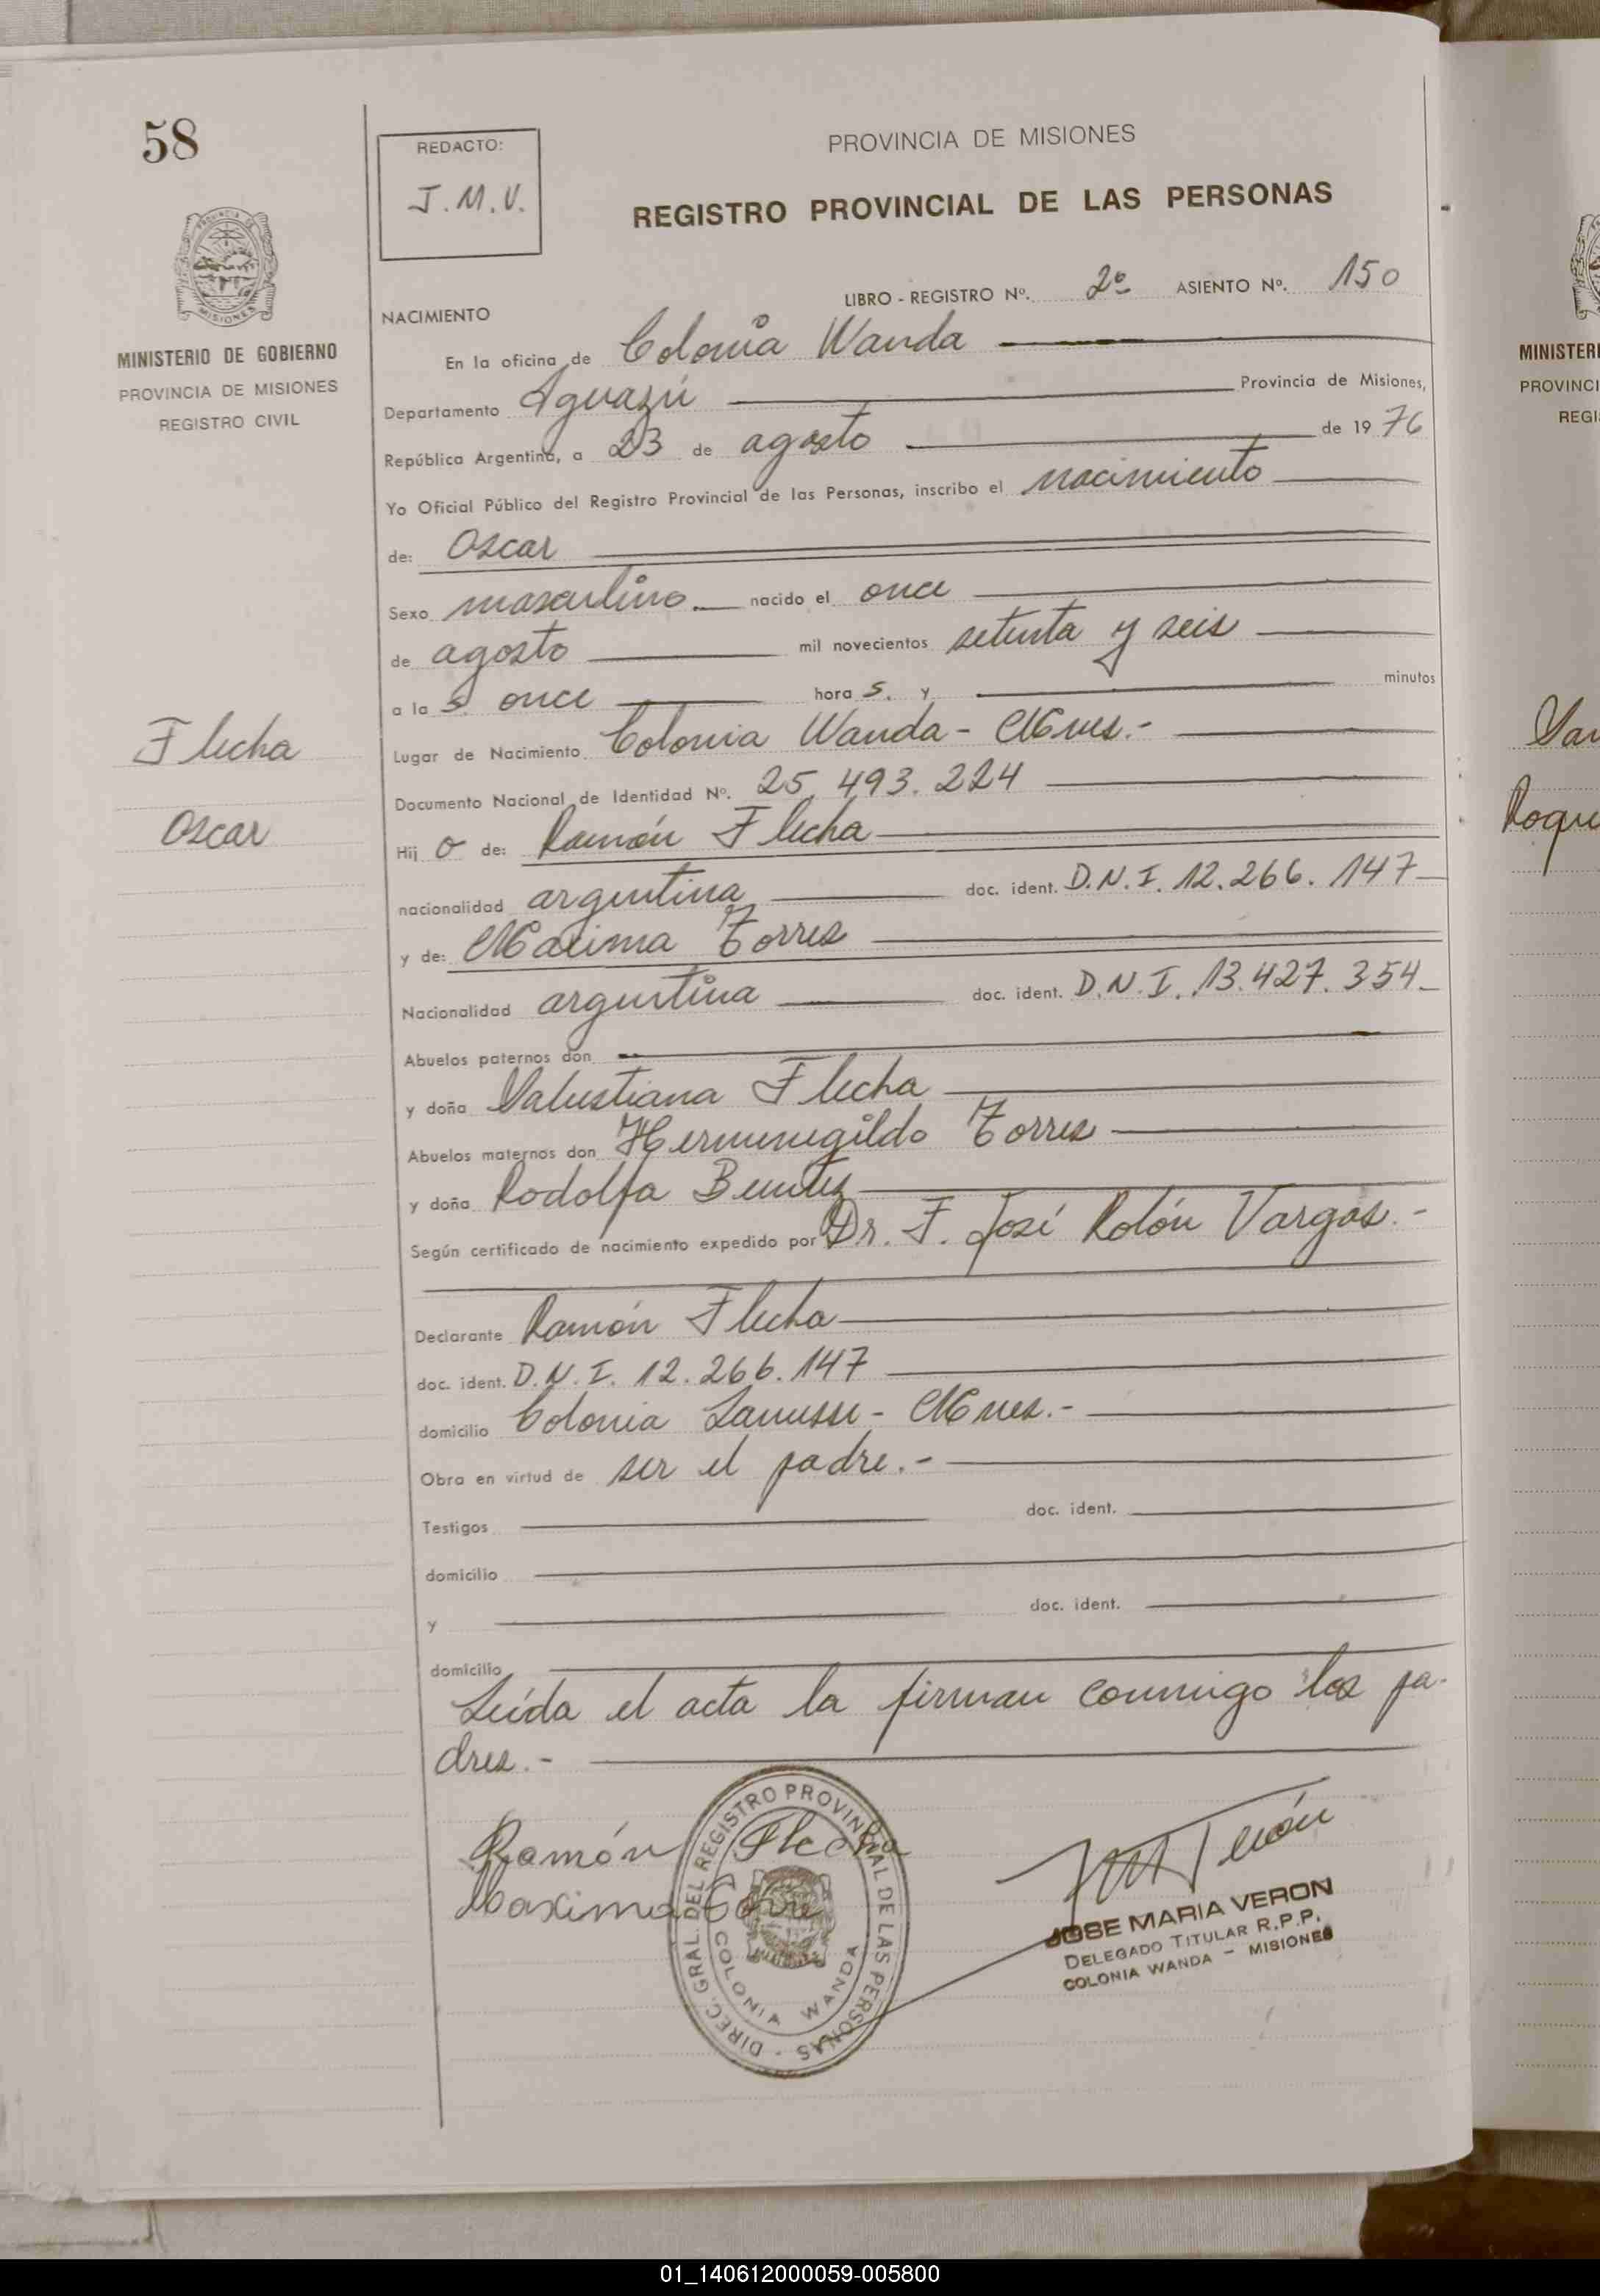 58
REDACTO:
J. M. V.
PROVINCIA DE MISIONES
REGISTRO PROVINCIAL DE LAS PERSONAS
LIBRO - REGISTRO Nº. 2º ASIENTO Nº. 150
MINISTERIO DE GOBIERNO
PROVINCIA DE MISIONES
REGISTRO CIVIL
NACIMIENTO
En la oficina de Colonia Wanda
Departamento Iguazú Provincia de Misiones,
República Argentina, a 23 de agosto de 1976
Yo Oficial Público del Registro Provincial de las Personas, inscribo el nacimiento
de: Oscar
Sexo masculino nacido el once
de agosto mil novecientos setenta y seis
a la s. once hora s. y minutos
Flecha
Oscar
Lugar de Nacimiento Colonia Wanda - Mnes.-
Documento Nacional de Identidad Nº. 25.493.224
Hij o de: Ramón Flecha
nacionalidad argentina doc. ident. D.N.I. 12.266.147
y de: Maxima Torres
Nacionalidad argentina doc. ident. D.N.I. 13.427.354
Abuelos paternos don
y doña Salustiana Flecha
Abuelos maternos don Hermenegildo Torres
y doña Rodolfa Benitez
Según certificado de nacimiento expedido por Dr. F. José Rolón Vargas.-
Declarante Ramón Flecha
doc. ident. D.N.I. 12.266.147
domicilio Colonia Lanusse - Mnes.-
Obra en virtud de ser el padre.-
Testigos doc. ident.
domicilio
y doc. ident.
domicilio
Leída el acta la firman conmigo los pa-
dres.-
Ramón Flecha
Maxima Torre
DIREC. GRAL. DEL REGISTRO PROVINCIAL DE LAS PERSONAS -
COLONIA WANDA
JOSE MARIA VERON
DELEGADO TITULAR R.P.P.
COLONIA WANDA - MISIONES
MINISTERI
PROVINCI
REGI
Roque
01_140612000059-005800